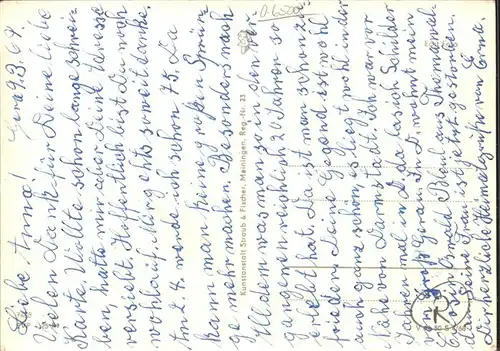 Gera 9.3.69.
Liebe Anna!
Vielen Dank für Deine liebe
Karte, wollte schon lange schrei-
ben, hatte mir aber Deine Adresse
versiebt. Hoffentlich bist Du noch
wohlauf. Mir gehts soweit danke.
Am 2.4. werde ich schon 75. Da
kann man keine großen Sprün-
ge mehr machen. Besonders nach
Alldem was man so in den ver-
gangenen reichlich 20 Jahren so
erlebt hat. Da ist man schon zu-
frieden. Deine Gegend ist wohl
auch ganz schön, es liegt wohl in der
Nähe von Darmstadt. Ich war vor
Jahren mal in D. da las ich Schilder
von Groß Gerau. In D. wohnt mein
Oswald aus
Deine Frau ist jetzt gestorben.
Dir herzliche Heimatgrüße von Erna.
Kunstanstalt Straub & Fischer, Meiningen, Reg-Nr. 23
R